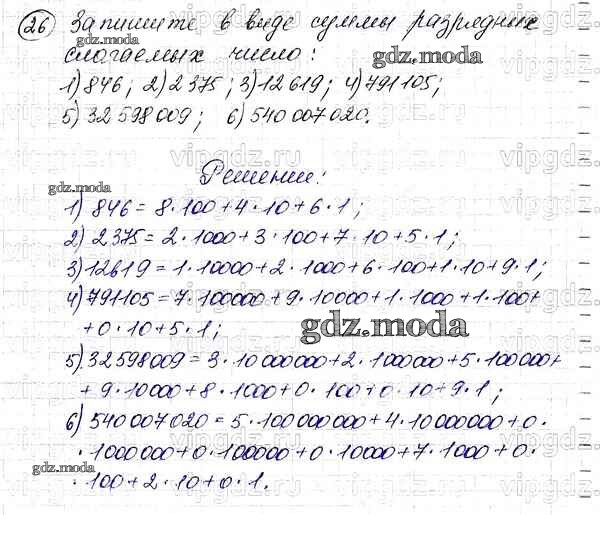 26 Запишите в виде суммы разрядных
слагаемых число:
1) 846; 2) 2 375; 3) 12 619; 4) 791 105;
5) 32 598 009; 6) 540 007 020.
Решение:
1) 846 = 8·100+4·10+6·1;
2) 2 375 = 2·1000+3·100+7·10+5·1;
3) 12619 = 1·10000+2·1000+6·100+1·10+9·1;
4) 791105 = 7·100000+9·10000+1·1000+1·100+
+0·10+5·1;
5) 32598009 = 3·10 000000+2·1000000+5·100000+
+9·10000+8·1000+0·100+0·10+9·1;
6) 540 007 020 = 5·100 000 000+4·10 000000+0·
·1000 000+0·100000+0·10000+7·1000+0·
·100+2·10+0·1.
gdz.moda
gdz.moda
gdz.moda
gdz.moda
vipgdz.ru